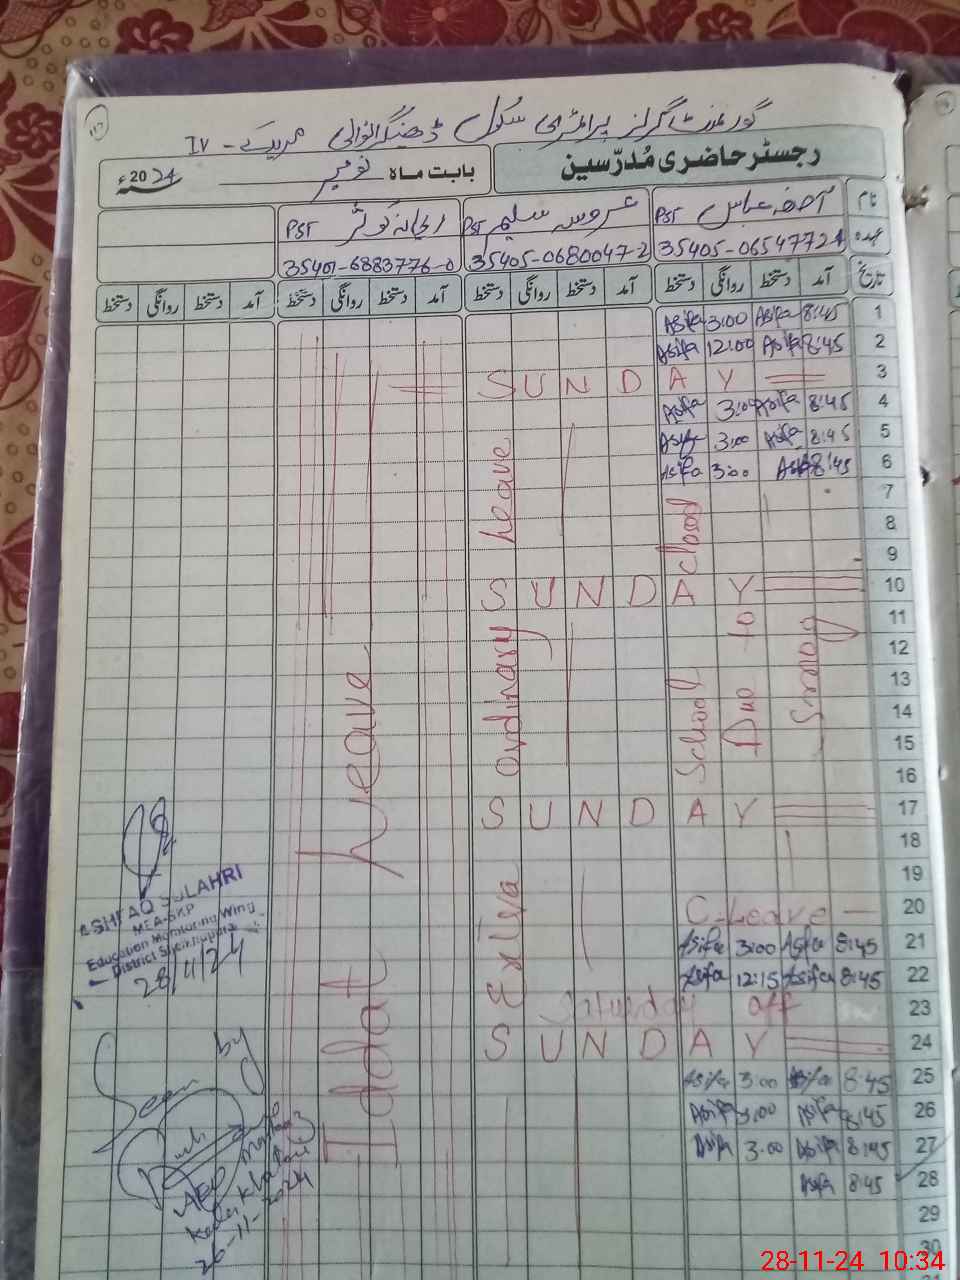 گورنمنٹ گرلز پرائمری سکول ڈھنگرانوالی مریدکے - IV
رجسٹر حاضری مُدرّسین
بابت ماہ نومبر 2024ء
نام آصفہ عباس PST عروسہ سلیم PST ریحانہ کوثر PST
عہدہ 35405-0680047-2 35401-6883776-0
تاریخ آمد دستخط روانگی دستخط آمد دستخط روانگی دستخط آمد دستخط روانگی دستخط آمد دستخط روانگی دستخط
1 8:45 Asifa 3:00 Asifa
2 8:45 Asifa 12:00 Asifa
3 SUNDAY
4 8:45 Asifa 3:00 Asifa
5 8:45 Asifa 3:00 Asifa
6 8:45 Asifa 3:00 Asifa
7
8
9
10 SUNDAY
11
12
13
14
15
16
17 SUNDAY
18
19
20 C-Leave
21 8:45 Asifa 3:00 Asifa
22 8:45 Asifa 12:15 Asifa
23 Saturday off
24 SUNDAY
25 8:45 Asifa 3:00 Asifa
26 8:45 Asifa 3:00 Asifa
27 8:45 Asifa 3:00 Asifa
28 8:45 Asifa
29
30
School closed
Due to
Smog
Extra ordinary Leave
Iddat Leave
ASHFAQ SULAHRI
MEA-SKP
Education Monitoring Wing
District Sheikhupura
28/11/24
Seen by
AEO
26-11-2024
28-11-24 10:34